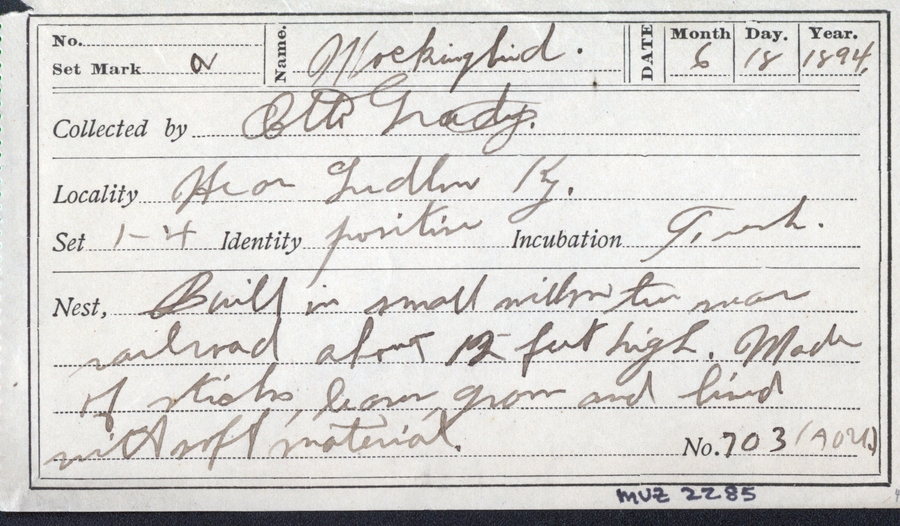 No. Name. Mockingbird. DATE Month Day. Year.
Set Mark a 6 18 1894.
Collected by Otto Grady.
Locality Near Ludlow Ky.
Set 1-4 Identity positive Incubation Fresh.
Nest, Built in small willow tree near
railroad about 12 feet high. Made
of sticks, leaves, grass and lined
with soft material.
No. 703 (AOU.)
MVZ 2285